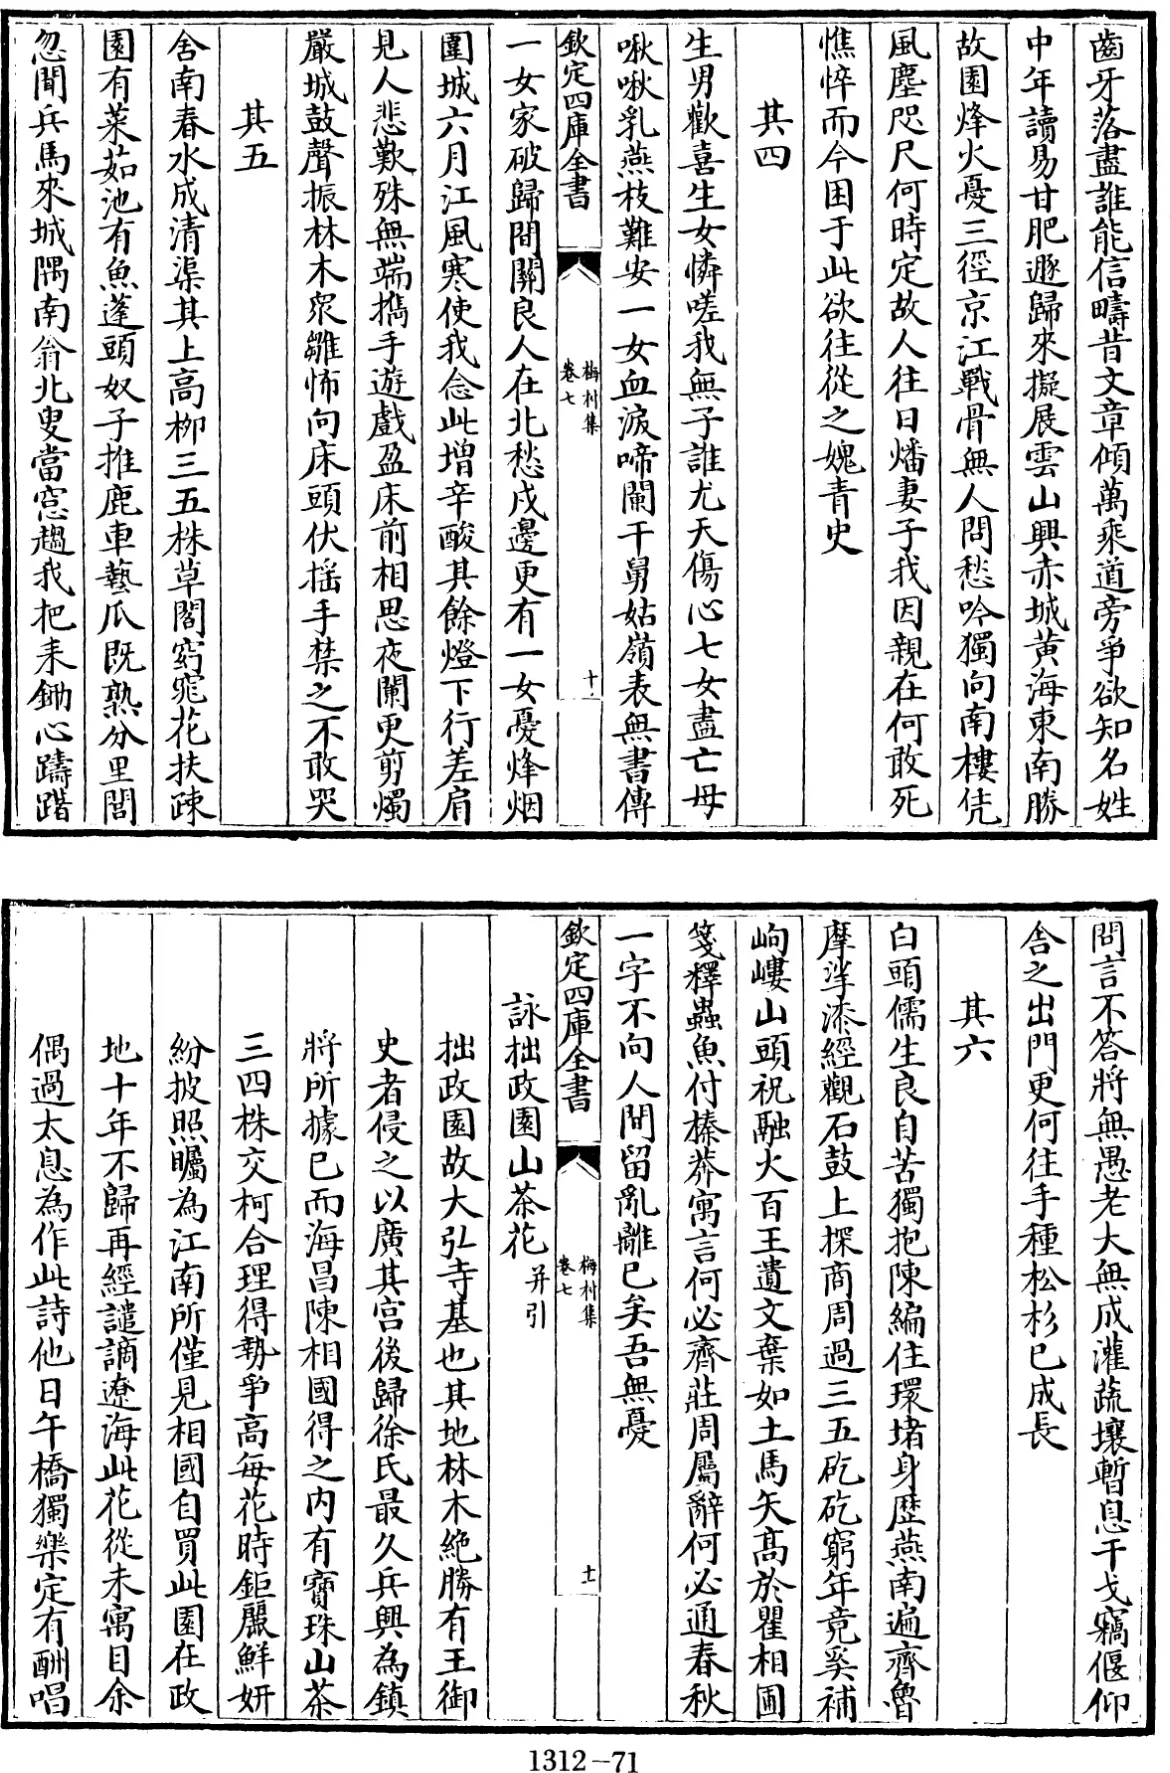 齒牙落盡誰能信疇昔文章傾萬乘道旁爭欲知名姓
中年讀易甘肥遯歸來擬展雲山興赤城黄海東南勝
故園烽火憂三徑京江戰骨無人問愁吟獨向南樓凭
風塵咫尺何時定故人往日燔妻子我因親在何敢死
憔悴而今困于此欲往從之媿青史
其四
生男歡喜生女憐嗟我無子誰尤天傷心七女盡亡母
啾啾乳燕枝難安一女血淚啼闌干舅姑嶺表無書傳
欽定四庫全書
梅村集
卷七
十
一女家破歸間關良人在北愁戍邊更有一女憂烽烟
圍城六月江風寒使我念此增辛酸其餘燈下行差肩
見人悲歎殊無端擕手遊戲盈床前相思夜闌更剪燭
嚴城鼓聲振林木衆雛怖向床頭伏摇手禁之不敢哭
其五
舍南春水成清渠其上高栁三五株草閣窈窕花扶疎
園有菜茹池有魚蓬頭奴子推鹿車藝瓜既熟分里閭
忽聞兵馬來城隅南翁北叟當窓趨我把耒鋤心躊躇
問言不答將無愚老大無成灌蔬壤暫息干戈竊偃仰
舍之出門更何往手種松杉已成長
其六
白頭儒生良自苦獨抱陳編住環堵身歴燕南遍齊魯
摩挲漆經觀石鼓上探商周過三五矻矻窮年竟奚補
岣嶁山頭祝融火百王遺文棄如土馬矢髙於瞿相圃
箋釋蟲魚付榛莽寓言何必齊莊周屬辭何必通春秋
一字不向人間留亂離已矣吾無憂
欽定四庫全書
梅村集
卷七
十一
詠拙政園山茶花并引
拙政園故大弘寺基也其地林木絶勝有王御
史者侵之以廣其宫後歸徐氏最久兵興為鎮
將所據已而海昌陳相國得之内有寶珠山茶
三四株交柯合理得勢爭高每花時鉅麗鮮妍
紛披照矚為江南所僅見相國自買此園在政
地十年不歸再經譴謫遼海此花從未寓目余
偶過太息為作此詩他日午橋獨樂定有酬唱
1312-71